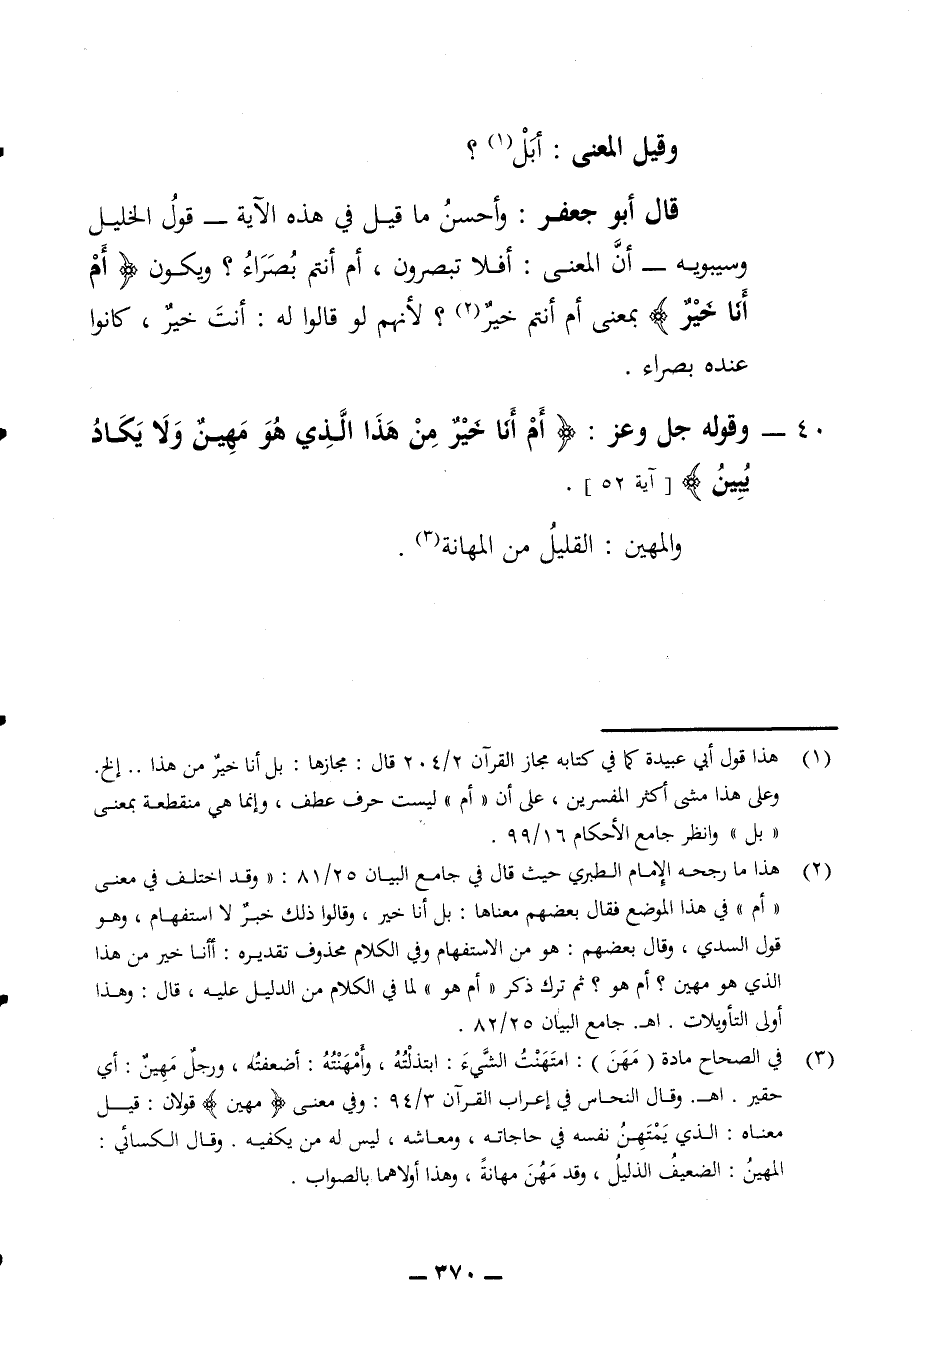 وقيل المعنى : أَبَلْ(١) ؟
قال أبو جعفر : وأحسنُ ما قيل في هذه الآية ــ قولُ الخليل
وسيبويه ــ أنَّ المعنى : أفلا تبصرون ، أم أنتم بُصَرَاءُ ؟ ويكون ﴿ أَمْ
أَنَا خَيْرٌ ﴾ بمعنى أم أنتم خيرٌ(٢) ؟ لأنهم لو قالوا له : أنتَ خيرٌ ، كانوا
عنده بصراء .
٤٠ ــ وقوله جل وعز : ﴿ أَمْ أَنَا خَيْرٌ مِنْ هَذَا الَّذِي هُوَ مَهِينٌ وَلَا يَكَادُ
يُبِينُ ﴾ [ آية ٥٢ ] .
والمهين : القليلُ من المهانة(٣) .
(١) هذا قول أبي عبيدة كما في كتابه مجاز القرآن ٢٠٤/٢ قال : مجازها : بل أنا خيرٌ من هذا .. إلخ.
وعلى هذا مشى أكثر المفسرين ، على أن « أم » ليست حرف عطف ، وإنما هي منقطعة بمعنى
« بل » وانظر جامع الأحكام ٩٩/١٦ .
(٢) هذا ما رجحه الإمام الطبري حيث قال في جامع البيان ٨١/٢٥ : « وقد اختلف في معنى
« أم » في هذا الموضع فقال بعضهم معناها : بل أنا خير ، وقالوا ذلك خبرٌ لا استفهام ، وهو
قول السدي ، وقال بعضهم : هو من الاستفهام وفي الكلام محذوف تقديره : أأنا خير من هذا
الذي هو مهين ؟ أم هو ؟ ثم ترك ذكر « أم هو » لما في الكلام من الدليل عليه ، قال : وهذا
أولى التأويلات . اهـ. جامع البيان ٨٢/٢٥ .
(٣) في الصحاح مادة ( مَهَنَ ) : امتَهَنْتُ الشَّيءَ : ابتذلْتُهُ ، وأَمْهَنْتُهُ : أضعفتُه ، ورجلٌ مَهِينٌ : أي
حقير . اهـ. وقال النحاس في إعراب القرآن ٩٤/٣ : وفي معنى ﴿ مهين ﴾ قولان : قيل
معناه : الذي يَمْتَهِنُ نفسه في حاجاته ، ومعاشه ، ليس له من يكفيه . وقال الكسائي :
المهينُ : الضعيفُ الذليلُ ، وقد مَهُنَ مهانةً ، وهذا أولاهما بالصواب .
ــ ٣٧٠ ــ